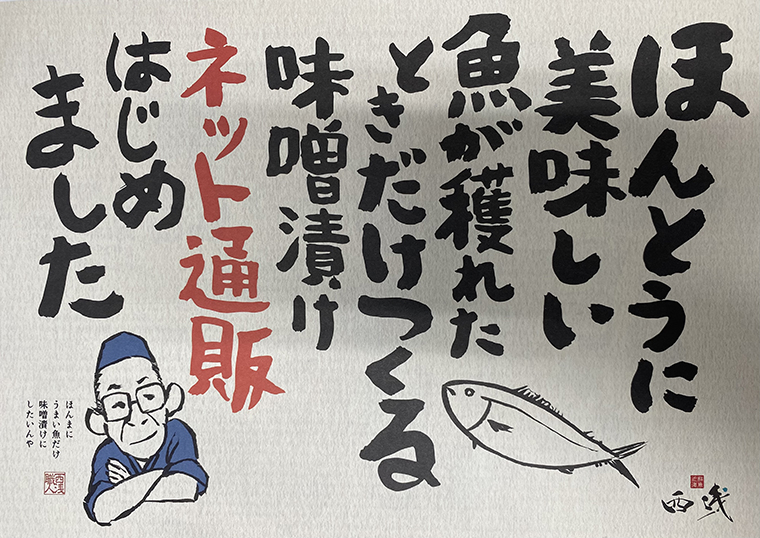 ほんとうに
美味しい
魚が獲れた
ときだけつくる
味噌漬け
ネット通販
はじめ
ました
ほんまに
うまい魚だけ
味噌漬けに
したいんや
西浅
職人
西浅